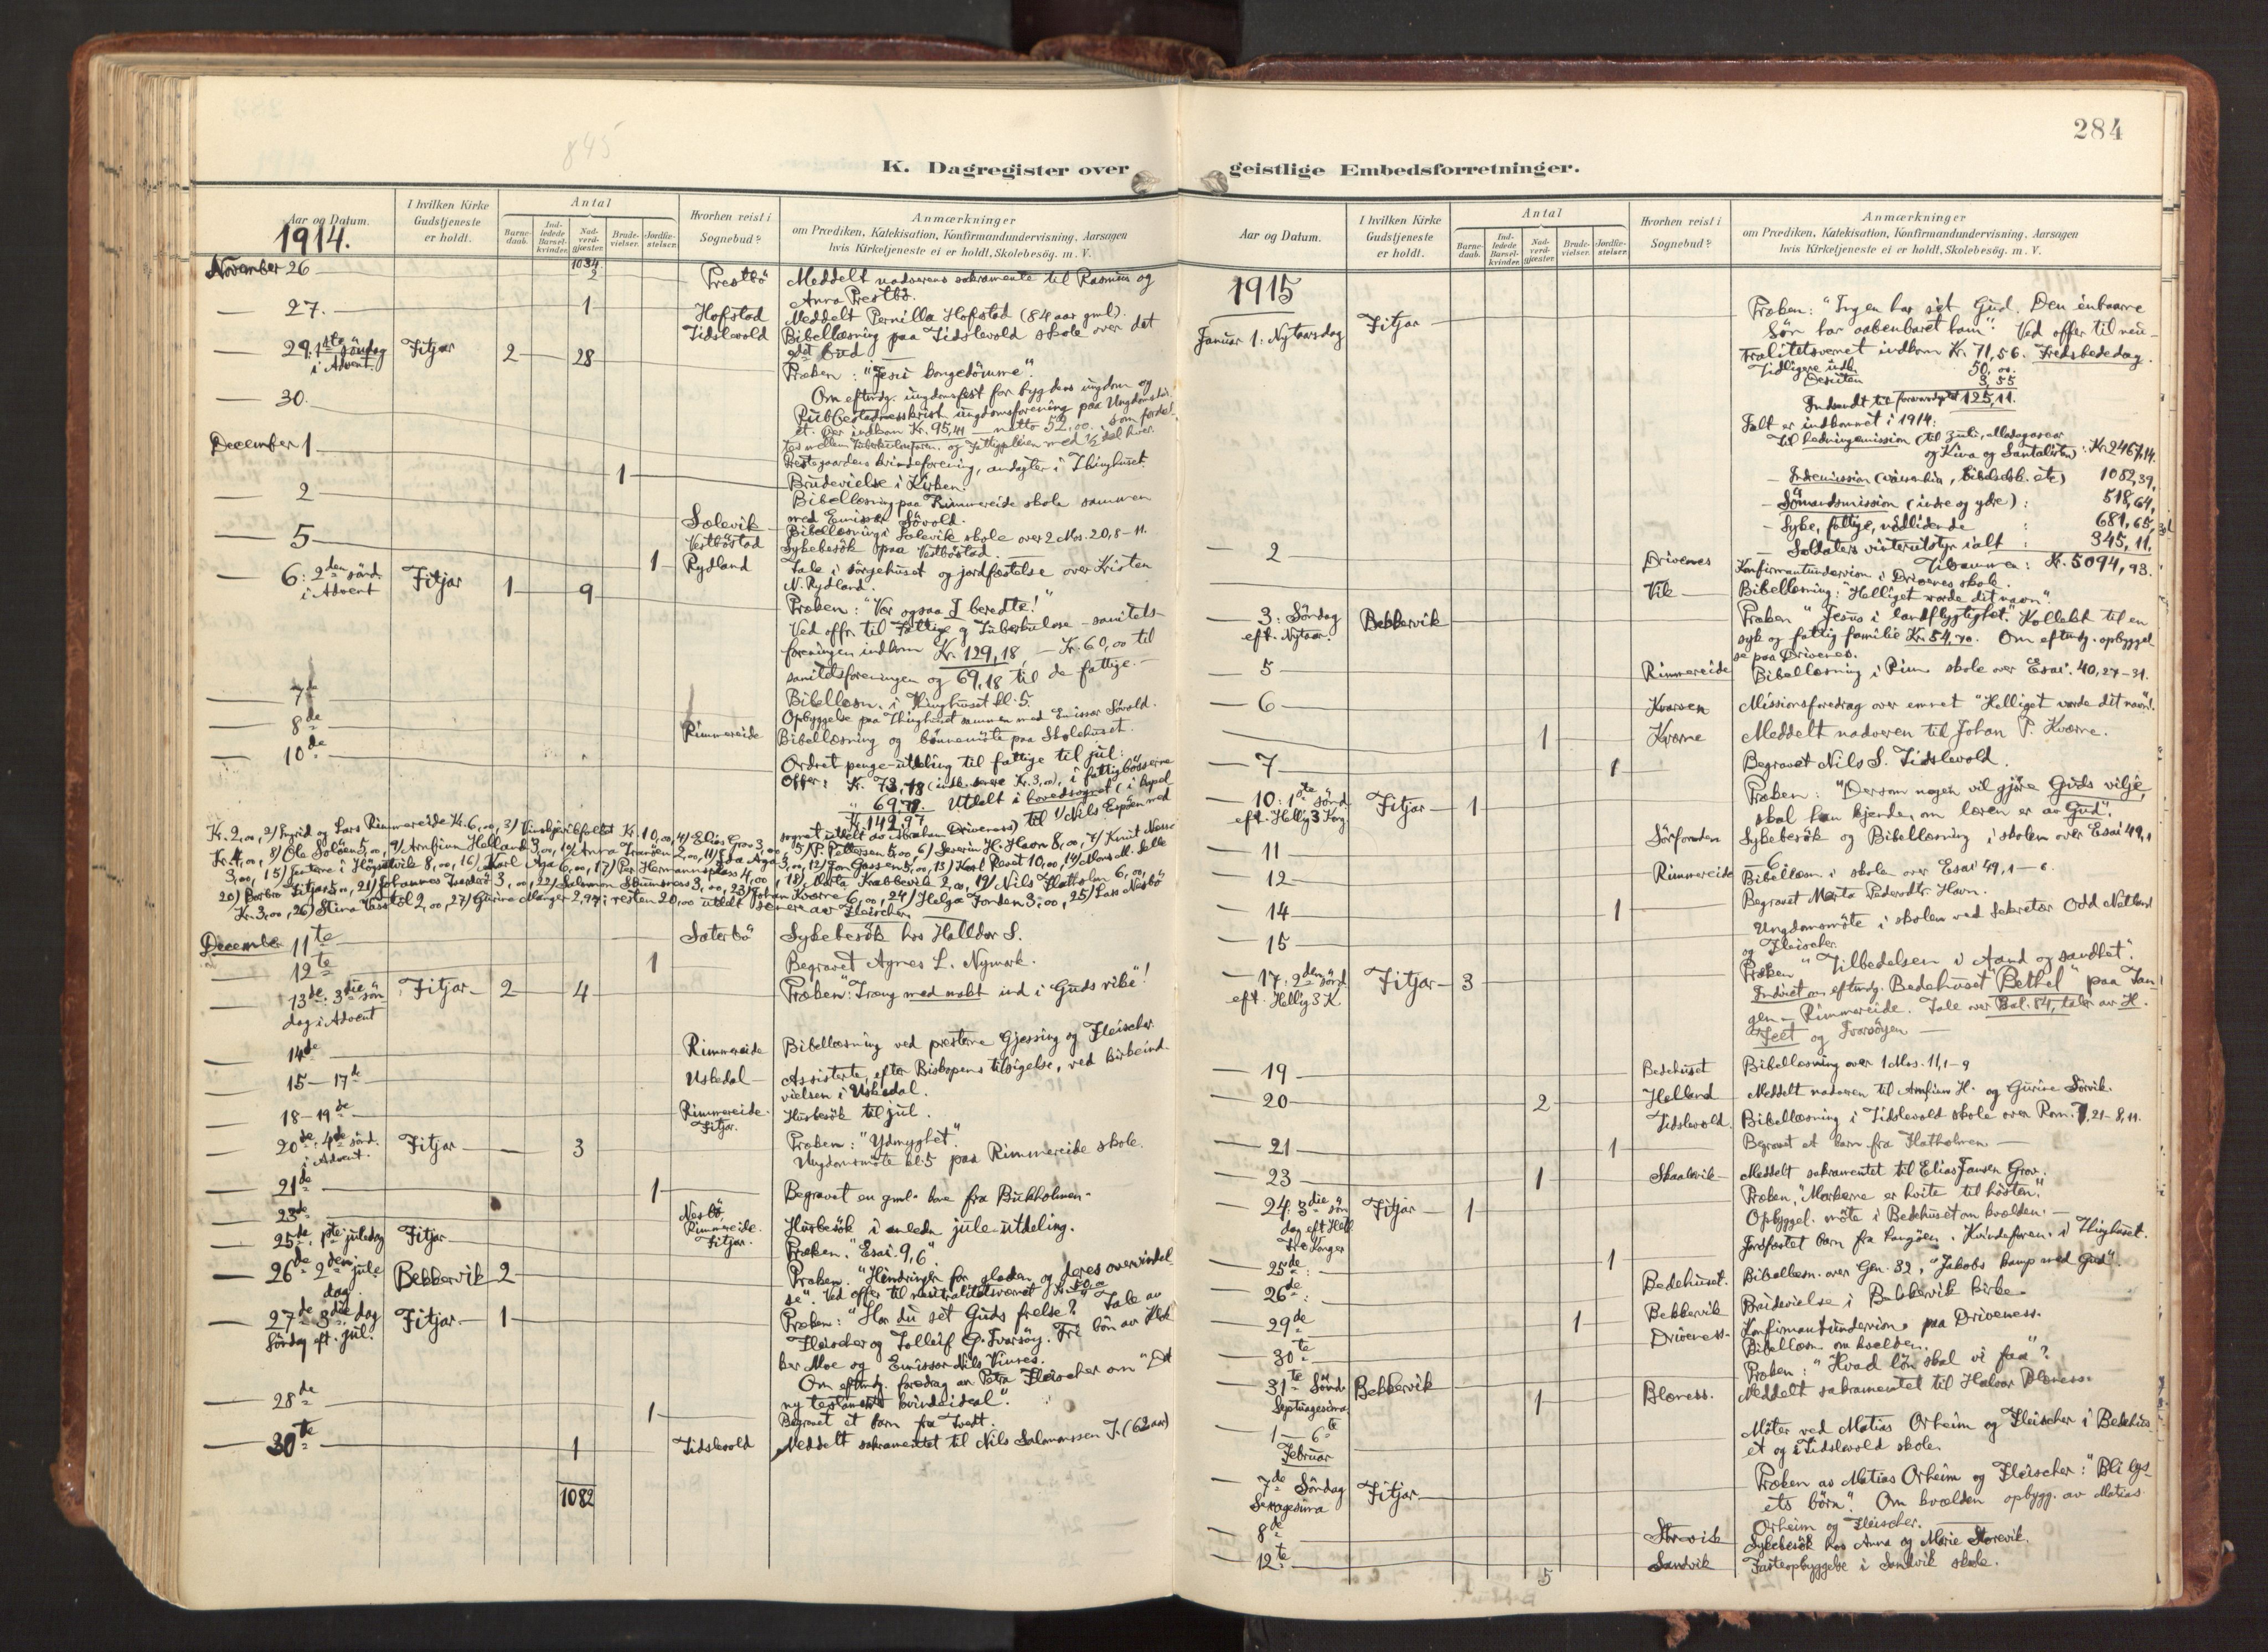 284
845
K. Dagregister over geistlige Embedsforretninger.
Aar og Datum.
I hvilken Kirke Gudstjeneste er holdt.
Antal
Barnedaab.
Indledede Barselkvinder.
Nadverdgjæster.
Brudevielser.
Jordfæstelser.
Hvorhen reist i Sognebud?
Anmærkninger
om Prædiken, Katekisation, Konfirmandundervisning, Aarsagen
hvis Kirketjeneste ei er holdt, Skolebesög. m. V.
1914.
1034
November 26 2 Prestbö Meddelt nadverens sakramente til Rasmus og
Anna Prestbö.
27. 1 Hofstad Meddelt Pernilla Hofstad (84 aar gml).
Tidslevold Bibellæsning paa Tidslevold skole over det
2det bud
29. 1ste söndag i Advent Fitjar 2 28 Præken: "Jesu kongedömme".
Om eftmdg. ungdomsfest for bygdens ungdom og
30.
ungdomsforening paa
et. Der indkom Kr. 95,41 netto 52,00, som fordel
December 1 Prestegaardens kvindeforening, andagter i Thinghuset.
1 Brudevielse i Kirken.
2 Bibellæsning paa Rimmereide skole sammen
med Emissær Sövold.
Solevik Bibellæsning i Solevik skole over 2 Mos. 20, 8-11.
5 Vestböstad Sykebesök paa Vestböstad.
1 Rydland Tale i sörgehuset og jordfæstelse over Kristen
N. Rydland.
6: 2den sönd. i Advent Fitjar 1 9 Præken: "Vær ogsaa I beredte!"
Ved offr. til Fattige og Tuberkulose - sanitets-
foreningen indkom Kr. 129,18 - Kr. 60,00 til
sanitetsforeningen og 69,18 til de fattige. -
7de Bibellæsn. i Thinghuset kl. 5.
8de Opbyggelse paa Thinghuset sammen med Emissær Sövold.
Rimmereide Bibellæsning og bönnemöte paa Skolehuset.
10de Ordnet penge-utdeling til fattige til jul:
Offer: Kr. 73,18 (indb. senere Kr. 3,00), i fattigbösserne
Utdelt i hovedsognet (i kapel
Kr. 142,97
sognet utdelt av Abraham Driveness) til 1/ Nils Espöen med
Kr. 2,00, 2/ Ingrid og Lars Rimmereide Kr. 6,00, 3/ Kr. 10,00, 4/ Elias Grov 3,00, 5/ P. Pettersen 5,00, 6/ Severin H. Havn 8,00, 7/ Knut Næsse
Kr. 4,00, 8/ Ole Solöen 5,00, 9/ Arnfinn Helland 3,00, 10/ Anna 2,00, 11/ Aga 3,00, 12/ Jon Gaasen 5,00, 13/ Karl Röset 10,00, 14/ Mons M.
3,00, 15/ 8,00, 16/ Karl Aga 6,00, 17/ Per Hermansplass 4,00, 18/ Marta Krabbevik 2,00, 19/ Nils Flatholm 6,00,
20/ Barbro Fitjar 5,00, 21/ Johannes 3,00, 22/ Salomon 3,00, 23/ Johan Kværne 6,00, 24/ Helga Fonden 3,00, 25/ Lars Nesbö
Kr. 3,00, 26/ Stina 2,00, 27/ Gurina Manger 2,97; resten 20,00 utdelt senere av Fleischer
December 11te Sæterbö Sykebesök hos Halldor S.
12te 1 Begravet Agnes L. Nymark.
13de 3die söndag i Advent Fitjar 2 4 Præken: "Træng med makt ind i Guds rike"!
14de Rimmereide Bibellæsning ved presterne Gjessing og Fleischer
15-17de Uskedal Assisterte, efter Biskopens tilsigelse, ved kirkeind-
vielsen i Uskedal.
18-19de Rimmereide. Fitjar. Husbesök til jul.
20de 4de sönd. i Advent. Fitjar 3 Præken: "Ydmyghet".
Ungdomsmöte kl. 5 paa Rimmereide skole.
21de 1 Begravet en gml. kone fra Bukholmen.
23de Nesbö, Rimmereide. Fitjar. Husbesök i anledn. jule-utdeling.
25de 1ste juledag Fitjar Præken. "Esai. 9,6"
26de 2den juledag. Bekkervik 2 Præken. "Hindringer for glæden og deres overvindel
se". Ved offer til neutralitetsvernet Kr. 50,00
27de 3die dag Söndag eft. jul. Fitjar 1 Præken: "Har du set Guds frelse?" Tale av
Fleischer og Tolleif G. Ivarsöy. Fri bön av Klok
ker Moe og Emissær Nils Vinnes.
Om eftmdg. foredrag av Petra Fleischer om "Det
ny testaments kvindeideal".
28de 1 Begravet et barn fra Tvedt.
30te 1 Tidslevold Meddelt sakramentet til Nils Salomonssen T. (62 aar)
1082
Aar og Datum.
I hvilken Kirke Gudstjeneste er holdt.
Antal
Barnedaab.
Indledede Barselkvinder.
Nadverdgjæster.
Brudevielser.
Jordfæstelser.
Hvorhen reist i Sognebud?
Anmærkninger
om Prædiken, Katekisation, Konfirmandundervisning, Aarsagen
hvis Kirketjeneste ei er holdt, Skolebesög. m. V.
1915
Januar 1: Nytaarsdag Fitjar Præken: "Ingen har set Gud. Den enbaarne
Sön har aabenbaret ham". Ved offer til neu-
tralitetsvernet indkom Kr. 71,56. Fredsbededag.
Tidligere indk. 50,00.
Desuten 3,55
Indsendt til 125,11.
Ialt er indkommet i 1914:
Til hedningemission (til Zulu, Madagascar
og Kina og Santalisten): Kr. 2467,14.
- Indremission 1082,39.
- Sömandsmission (indre og ydre): 518,64,
- Syke, fattige, nödlidende : 681,65,
- Soldaters vinterutstyr ialt : 345,11,
Tilsammen: Kr. 5094,93.
2 Drivenes Konfirmantundervisn. i Drivenes skole.
Vik Bibellæsning: "Helliget vorde dit navn".
3: Söndag eft. Nytaar. Bekkervik Præken "Jesus i landflygtighet". Kollekt til en
syk og fattig familie Kr. 54,70. Om eftmdg. opbyggel
se paa Drivenes.
5 Rimmereide Bibellæsning i Rim. skole over Esai. 40, 27-31.
6 Kvarven Missionsforedrag over emnet "Helliget vorde dit navn".
1 Kværne Meddelt nadveren til Johan P. Kværne.
7 1 Begravet Nils S. Tidslevold.
10: 1ste sönd. eft. Hellig 3 Kong. Fitjar 1 Præken: "Dersom nogen vil gjöre Guds vilje,
skal han kjende, om læren er av Gud".
11 Sörfonden Sykebesök og Bibellæsning i skolen over Esai 49, 1
-6
12 Rimmereide Bibellæsn. i skolen over Esai 49, 1-6.
14 1 Begravet Marta Pedersdtr. Havn.
15 Ungdomsmöte i skolen ved Sekretær Odd Natland
og Fleischer.
17. 2den sönd. eft. Hellig 3 K. Fitjar 3 Præken "Tilbedelsen i Aand og sandhet".
Indviet om eftmdg. Bedehuset "Bethel" paa Tan
gen - Rimmereide. Tale over Sal. 84, taler av H.
Teet og Ivarsöyen -
19 Bedehuset Bibellæsning over 1 Mos. 11, 1-9
20 2 Helland Meddelt nadveren til Arnfinn H. og Gurine Sörvik.
Tidslevold. Bibellæsning i Tidslevold skole over Rom. 7, 21-8, 11.
21 1 Begravet et barn fra Flatholmen
23 1 Skaalevik Meddelt sakramentet til Elias Jansen Grov.
24: 3die söndag eft. Hell. Tre Konger Fitjar 1 Præken, "Markerne er hvite til hösten".
Opbyggel. möte i Bedehuset om kvælden. -
25de: 1 Jordfæstet barn fra Langöen. Kvindeforen. i Thinghuset.
26de: Bedehuset. Bibellæsn. over Gen. 32, "Jakobs kamp med Gud".
29de 1 Bekkervik Brudevielse i Bekkervik kirke.
Driveness. Konfirmantundervisn. paa Driveness.
30te Bibellæsn. om kvælden.
31te Sönd. Septuagesima. Bekkervik Præken: "Hvad lön skal vi faa"?
1 Blæness. Meddelt sakramentet til Halvor Blæness.
1-6te Februar Möter ved Matias Orheim og Fleischer i Bedehus
et og i Tidslevold skole.
7de Söndag Sexagesima Fitjar Præken av Matias Orheim og Fleischer: "Bli lys-
ets börn". Om kvælden opbygg. av Matias
Orheim og Fleischer.
8de Storevik Sykebesök hos Anna og Marie Storevik.
12te Sandvik Fasteopbyggelse i Sandvik skole.
5